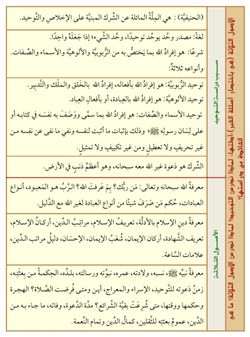 (الحنيفيَّة): هي الملَّةُ المائلة عن الشِّرك المبنيَّة على الإخلاصِ والتَّوحيد.
لغةً: مصدر وحَّد يوحِّد توحيدًا، وحَّد الشَّيءَ إذا جعلَهُ واحدًا.
شرعًا: هو إفرادُ اللَّه بما يختصُّ به من الرُّبوبيَّة والألوهيَّة والأسماء والصِّفات.
وأنواعه ثلاثةٌ:
توحيد الرُّبوبيَّة: هو إفرادُ اللَّه بأفعاله، هو إفرادُ اللَّه بالخلق والملك والتَّدبير.
توحيد الألوهيَّة: هو إفرادُ اللَّه بالعبادة، أو بأفعال العباد.
توحيد الأسماء والصِّفات: هو إفرادُ اللَّه بما سمَّى ووصَفَ به نفسَهُ في كتابه أو
على لسان رسوله ﷺ، وذلك بإثبات ما أثبت لنفسه ونفي ما نفى عن نفسه من
غير تحريف ولا تعطيل ومن غير تكييف ولا تمثيل.
الشِّرك هو دعوة غير اللَّه معه سبحانه، وهو أعظمُ ذنبٍ في الأرض.
معرفةُ اللَّه سبحانه وتعالى: مَن ربُّك؟ بمَ عرفتَ اللَّه؟ الرَّبُّ هو المعبود، أنواع
العبادات، حُكم مَن صَرَفَ شيئًا من أنواع العبادة لغير اللَّه مع الدَّليل.
معرفةُ دينِ الإسلام بالأدلَّة، تعريف الإسلام، مراتب الدِّين، أركان الإسلام،
تعريف الشَّهادة، أركان الإيمان، شُعَبُ الإيمان، الإحسان، دليلُ مراتب الدِّين،
علامات السَّاعة.
معرفةُ نبيِّه ﷺ: نسبه، ولادته، عمره، نبوَّته ورسالته، بلدُهُ، الحِكمةُ من بعثته،
زمنُ دَعوته للتَّوحيد، الإسراء والمعراج، أين ومتى فُرِضت الصَّلاة؟ الهجرة
وحكمها ووقتها، متى شُرِعَت بقيَّة الشَّرائع؟ مدَّة الدَّعوة، وفاته، ما جاء به من
الدِّين، عمومُ بعثته للثَّقلين، كمالُ الدِّين وتمام النِّعمة.
الأصول الثلاثة